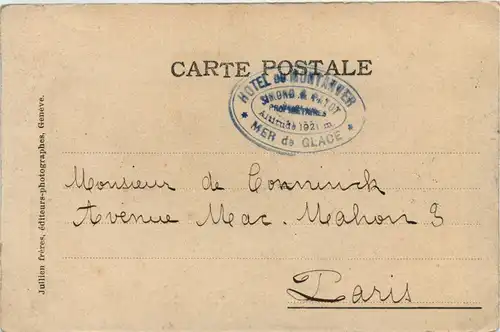 CARTE POSTALE
HOTEL DU MONTANVER
SIMOND & PAYOT
PROPRIETAIRES
Altitude 1921 m.
* MER de GLACE *
Monsieur de Conninck
Avenue Mac. Mahon 3
Paris
Jullien frères, éditeurs-photographes, Genève.